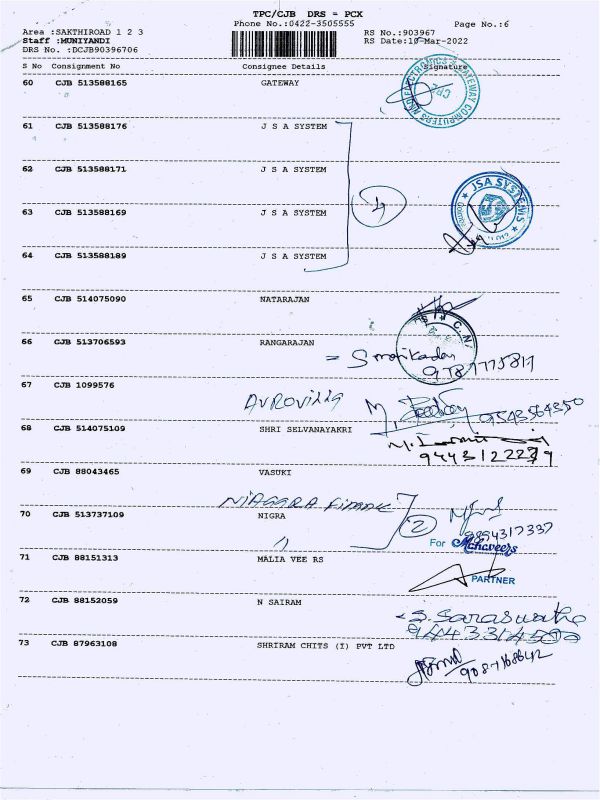 TPC/CJB DRS = PCX
Phone No.:0422-3505555
Page No.:6
Area :SAKTHIROAD 1 2 3
RS No.:903967
Staff :MUNIYANDI
RS Date:10-Mar-2022
DRS No. :DCJB90396706
S No Consignment No Consignee Details Signature
60 CJB 513588165 GATEWAY
61 CJB 513588176 J S A SYSTEM
62 CJB 513588171 J S A SYSTEM
4
JSA SYSTEMS
63 CJB 513588169 J S A SYSTEM
64 CJB 513588189 J S A SYSTEM
65 CJB 514075090 NATARAJAN
66 CJB 513706593 RANGARAJAN
67 CJB 1099576
9543564350
68 CJB 514075109 SHRI SELVANAYAKRI
9443122279
69 CJB 88043465 VASUKI
NIAGARA FINANCE
70 CJB 513737109 NIGRA
2
9894317337
For Mahaveers
71 CJB 88151313 MALIA VEE RS
PARTNER
72 CJB 88152059 N SAIRAM
73 CJB 87963108 SHRIRAM CHITS (I) PVT LTD